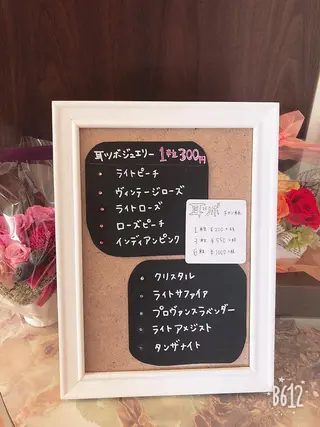 耳ツボジュエリー 1粒300円
ライトピーチ
ヴィンテージローズ
ライトローズ
ローズピーチ
インディアンピンク
クリスタル
ライトサファイア
プロヴァンスラベンダー
ライトアメジスト
タンザナイト
B612